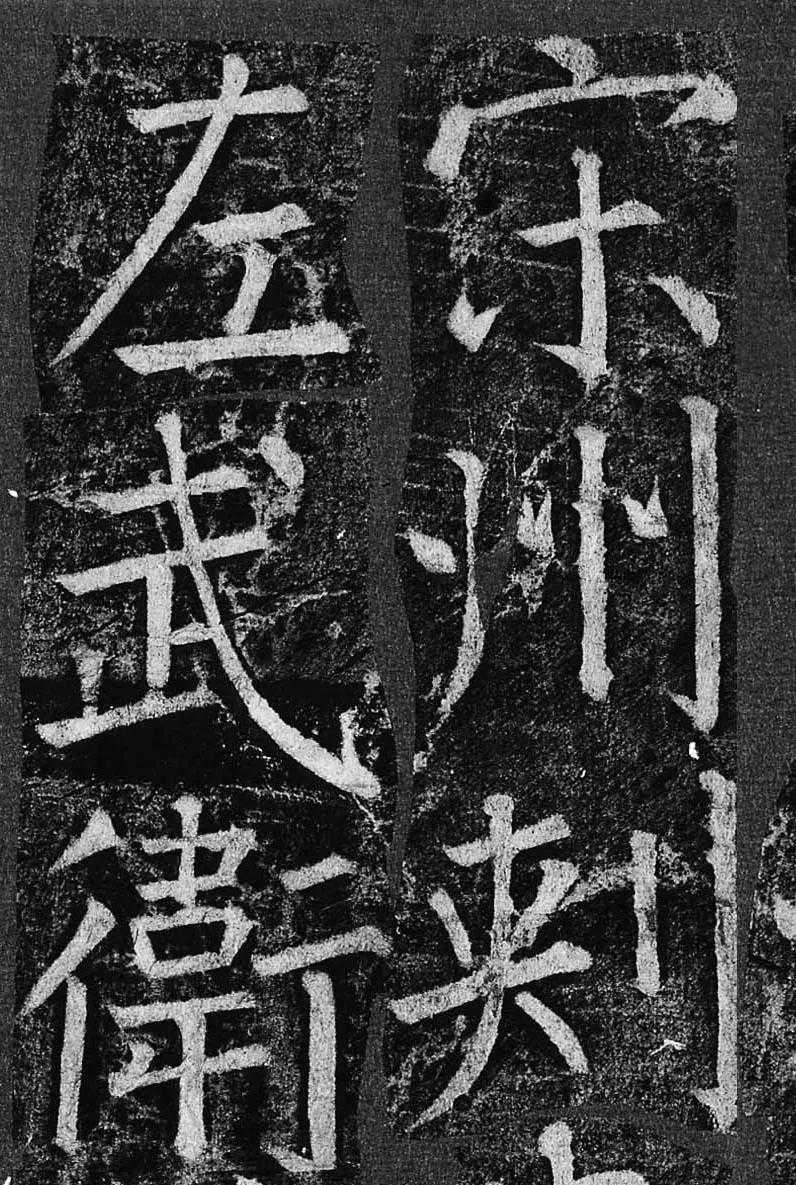 宋州刺
左武衛